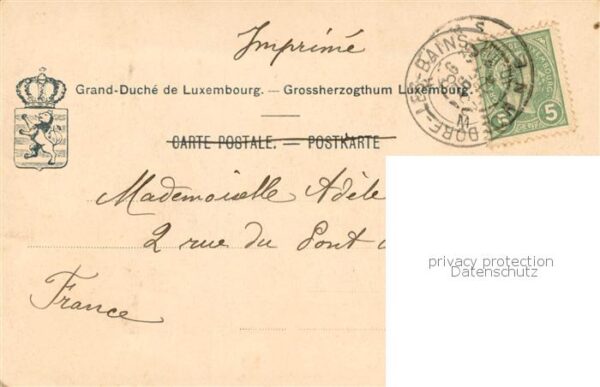 Imprimé
Grand-Duché de Luxembourg. — Grossherzogthum Luxemburg.
CARTE POSTALE. — POSTKARTE
Mademoiselle Adèle
2 rue du Pont
France
5
privacy protection
Datenschutz